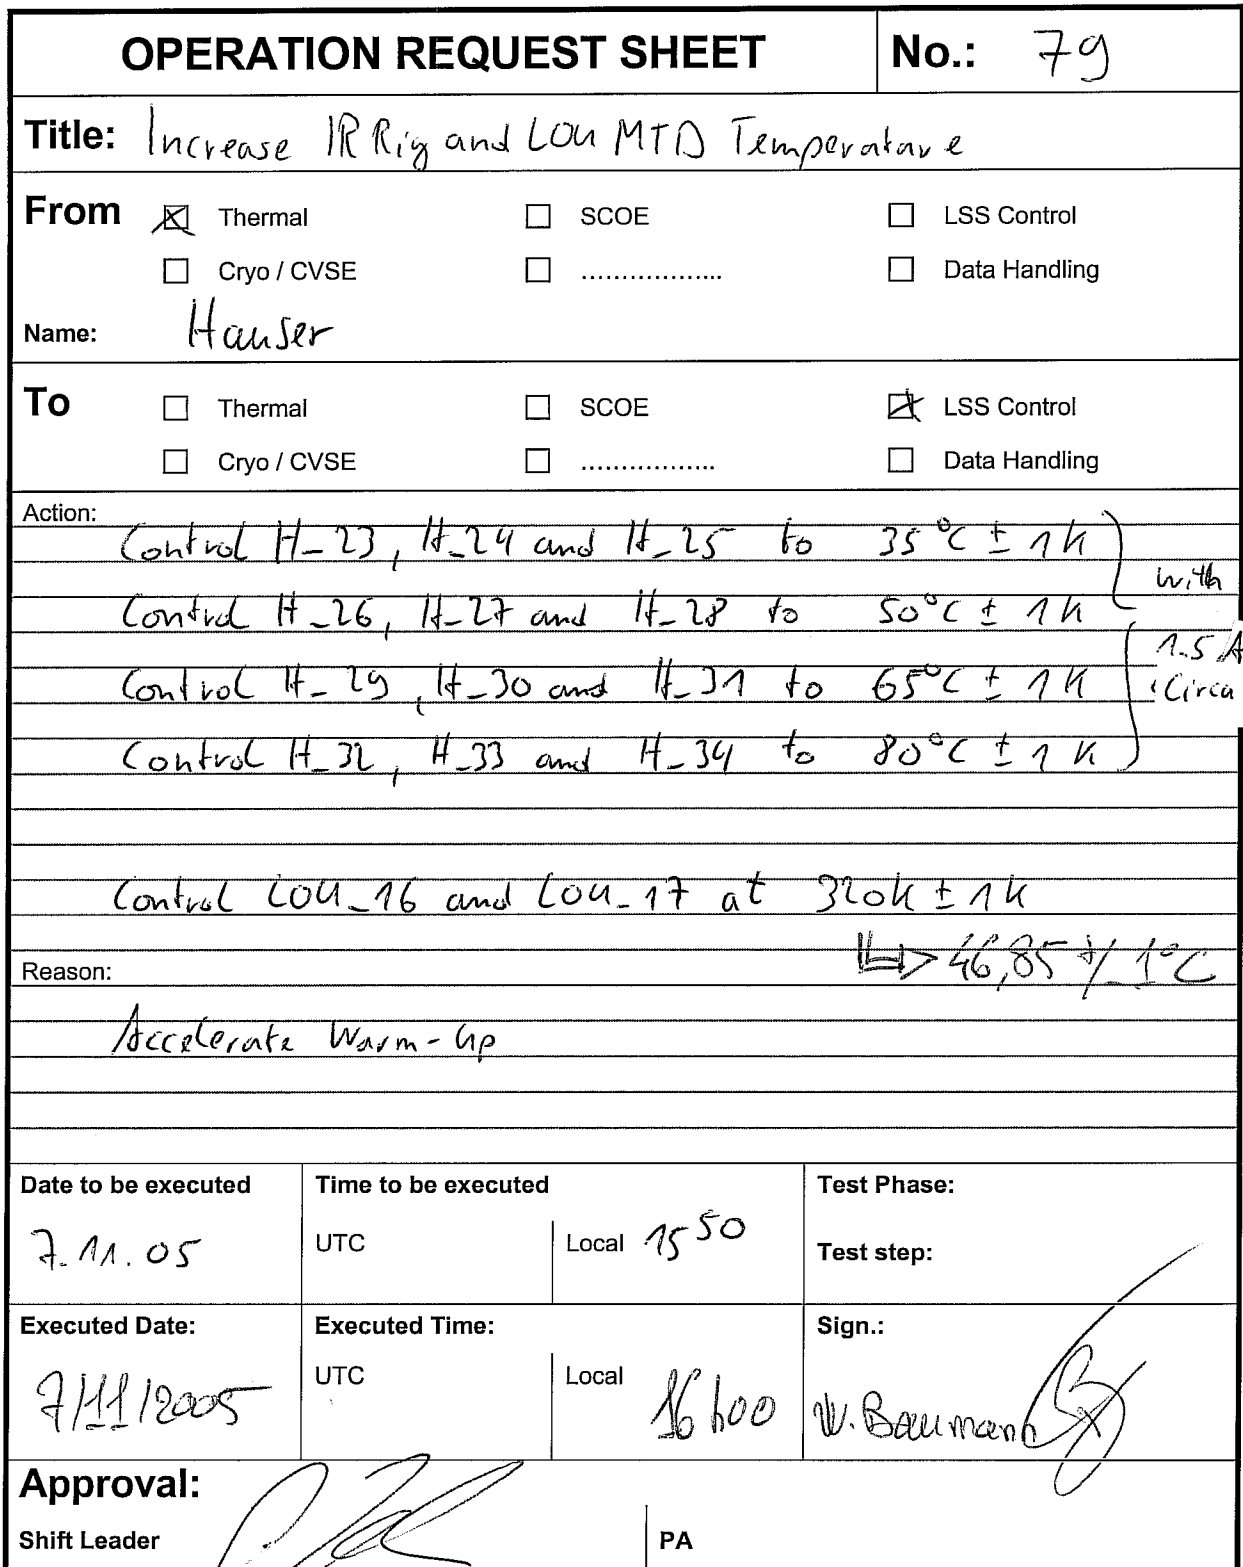 OPERATION REQUEST SHEET No.: 79
Title: Increase IR Rig and LOU MTD Temperature
From Thermal SCOE LSS Control
Cryo / CVSE .................. Data Handling
Name: Hauser
To Thermal SCOE LSS Control
Cryo / CVSE ................. Data Handling
Action:
Control H_23, H_24 and H_25 to 35°C ± 1K
with
Control H_26, H_27 and H_28 to 50°C ± 1K
1.5 A
Control H_29, H_30 and H_31 to 65°C ± 1K
Circa
Control H_32, H_33 and H_34 to 80°C ± 1K
Control LOU_16 and LOU_17 at 320K ± 1K
46,85 +/- 1°C
Reason:
Accelerate Warm-Up
Date to be executed Time to be executed Test Phase:
7.11.05 UTC Local 15 50 Test step:
Executed Date: Executed Time: Sign.:
7/11/2005 UTC Local 16h00 W. Baumann
Approval:
Shift Leader PA